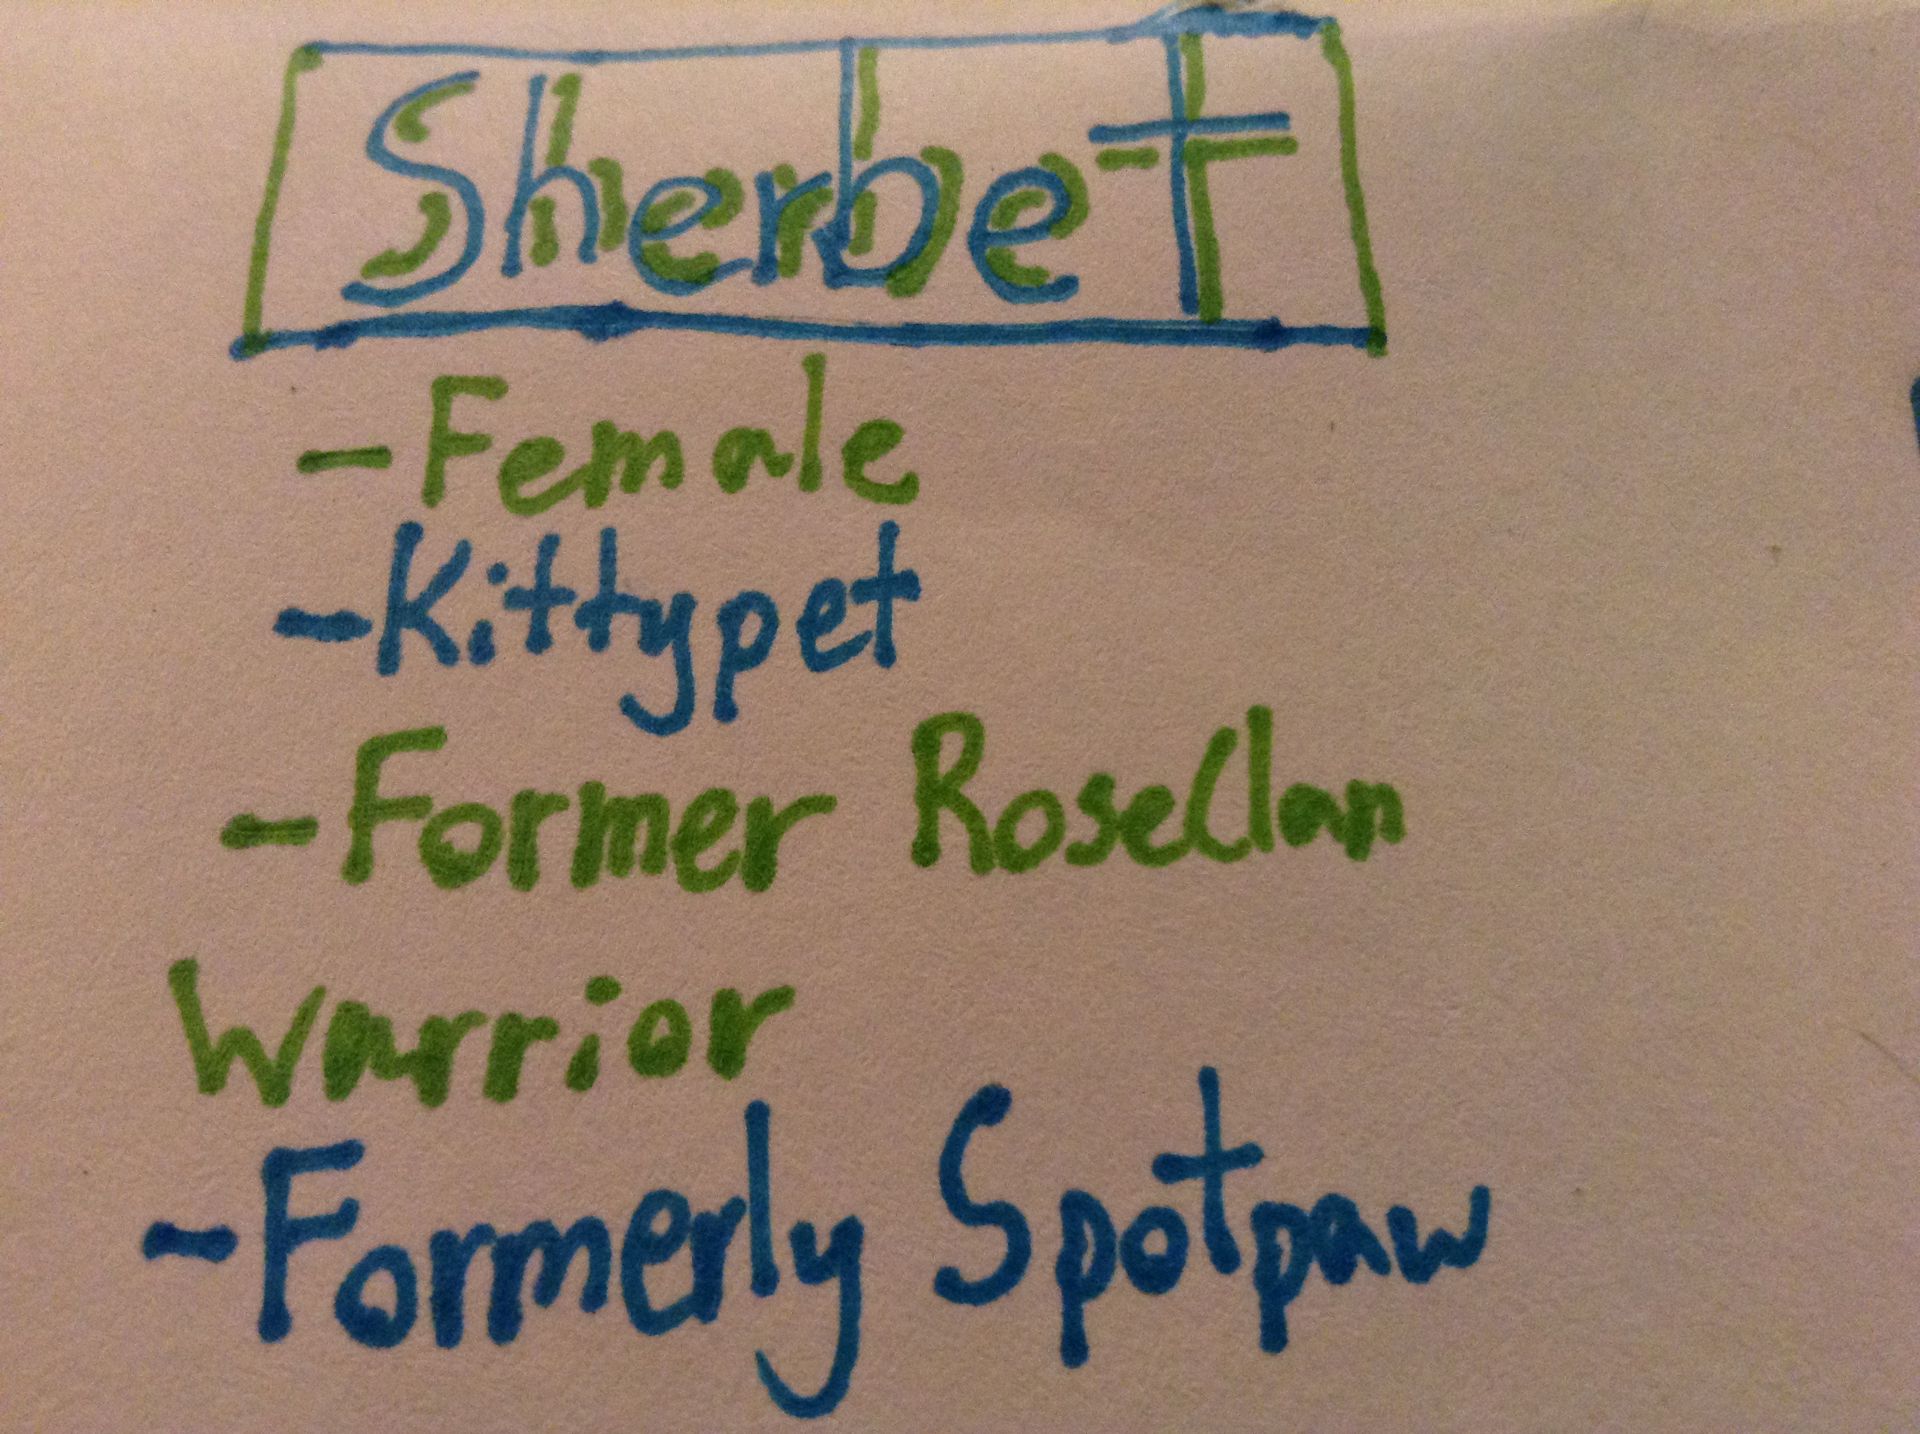 Sherbet
-Female
-Kittypet
-Former RoseClan
Warrior
-Formerly Spotpaw